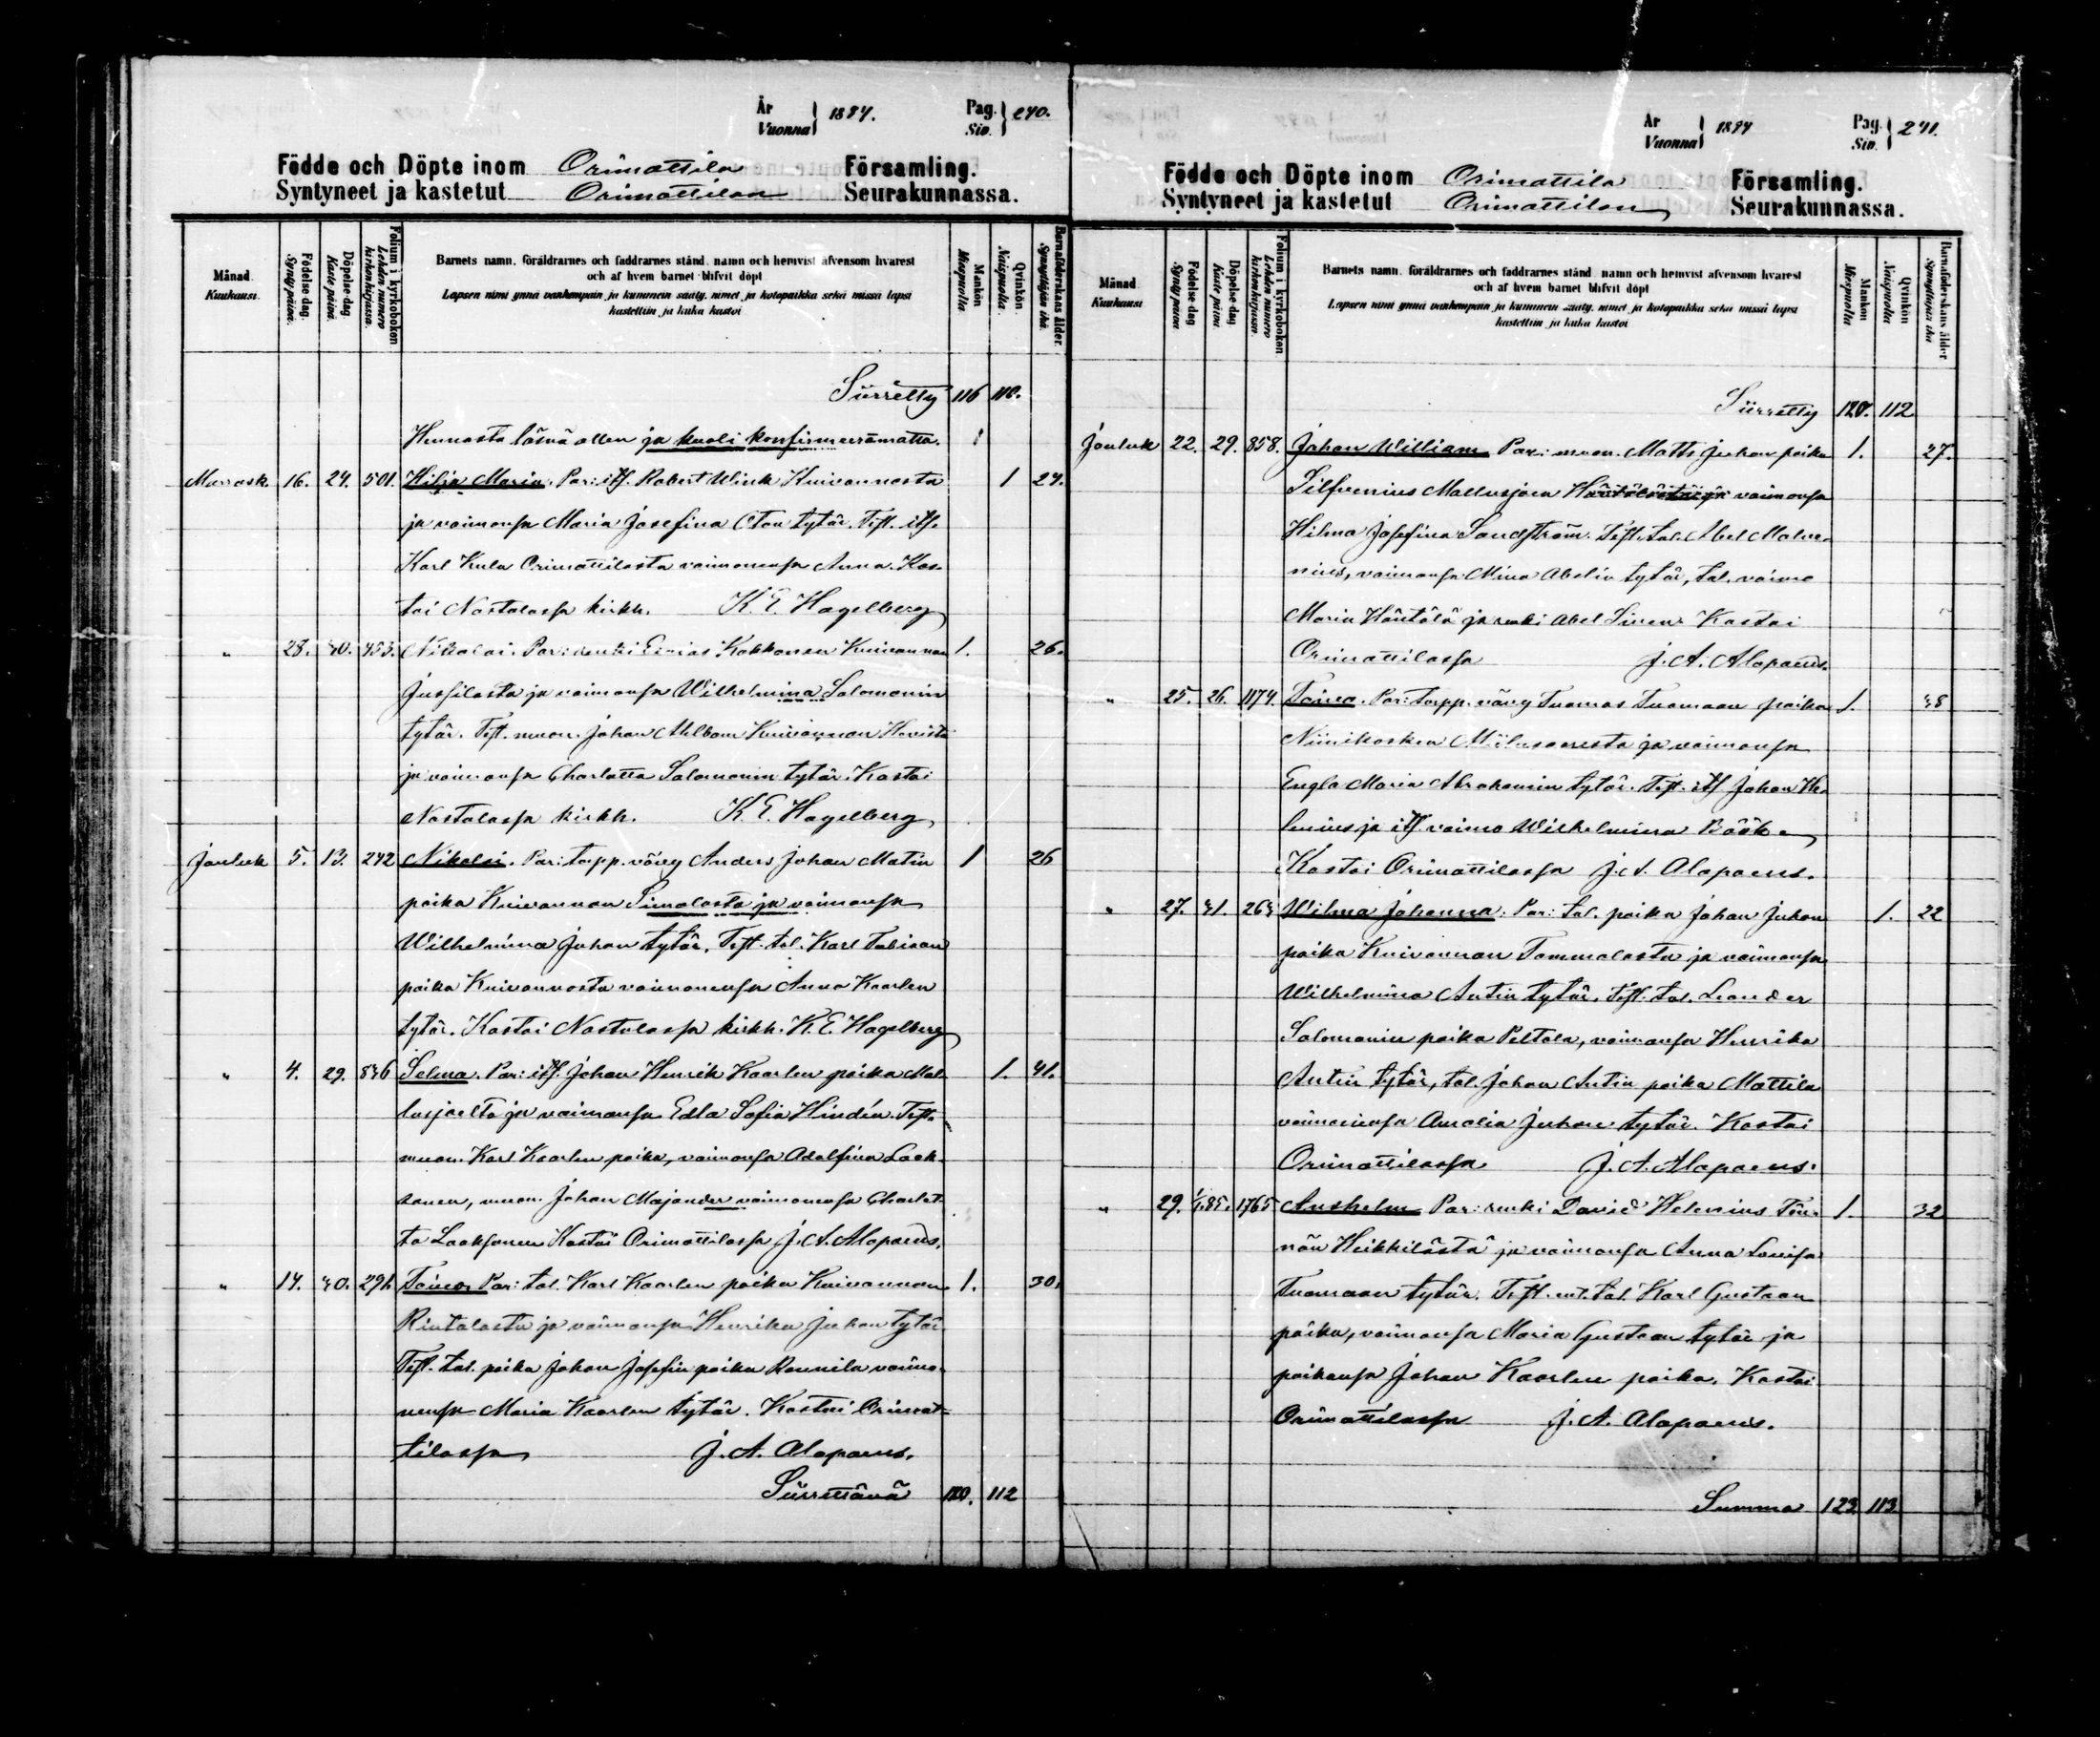 År
Vuonna } 1884.
Pag.
Siv. } 240.
Födde och Döpte inom Orimattila Församling.
Syntyneet ja kastetut Orimattilan Seurakunnassa.
Månad.
Kuukausi.
Födelse dag.
Syntypäivä.
Döpelse dag.
Kastepäivä.
Folium i kyrkoboken
Lehden numero
kirkonkirjassa.
Barnets namn, föräldrarnes och faddrarnes stånd, namn och hemvist äfvensom hvarest
och af hvem barnet blifvit döpt.
Lapsen nimi ynnä vanhempain ja kummein sääty, nimet ja kotopaikka sekä missä lapsi
kastettiin ja kuka kastoi
Mankön
Miespuolta
Qvinkön
Naispuolta.
Barnaföderskans ålder.
Synnyttäjän ikä.
Siirretty 116 110.
Hennasta läsnä ollen ja kuoli konfirmeeramatta.
Marrask. 16. 24. 501. Hilja Maria. Par: its. Robert Wink Kuivannosta 1 24.
ja vaimonsa Maria Josefina Oton tytär. Test. its.
Karl Kula Orimattilasta vaimonensa Anna. Kas-
toi Nastolassa kirkh. K. E. Hagelberg
" 28. 30. 453. Nikolai. Par: renki Esaias Kokkonen Kuivannon 1. 26.
Jussilasta ja vaimonsa Wilhelmina Salomonin
tytär. Test. muon. Johan Ahlbom Kuivannon
ja vaimonsa Charlotta Salomonin tytär. Kastoi
Nastolassa kirkh. K. E. Hagelberg
Jouluk 5. 13. 242 Nikolai. Par: torpp. vävy Anders Johan Matin 1 26
poika Kuivannon Simolasta ja vaimonsa
Wilhelmina Juhon tytär. Test. tal. Karl Tobiaan
poika Kuivannosta vaimonensa Anna Kaarlen
tytär. Kastoi Nastolassa kirkh. K. E. Hagelberg
" 4. 29. 836 Selma. Par: its. Johan Henrik Kaarlen poika Mal- 1. 41.
lusjoelta ja vaimonsa Edla Sofia Hindén. Test.
muon. Karl Kaarlen poika, vaimonsa Adolfina Laak-
sonen, muon. Johan Majander vaimonensa Charlot-
ta Laaksonen Kastoi Orimattilassa J. A. Alopaeus.
" 14. 30. 291. Toivo. Par: tal. Karl Kaarlen poika Kuivannon 1. 30.
Rintalasta ja vaimonsa Henrika Juhon tytär
Test. tal. poika Johan Josefin poika Rounila vaimo-
nensa Maria Kaarlen tytär. Kastoi Orimat-
tilassa J. A. Alopaeus.
Siirrettävä 120. 112
År
Vuonna } 1884
Pag.
Siv. } 241.
Födde och Döpte inom Orimattila Församling.
Syntyneet ja kastetut Orimattilan Seurakunnassa.
Månad.
Kuukausi.
Födelse dag
Syntypäivä
Döpelse dag
Kastepäivä
Folium i kyrkoboken
Lehden numero
kirkonkirjassa
Barnets namn, föräldrarnes och faddrarnes stånd, namn och hemvist äfvensom hvarest
och af hvem barnet blifvit döpt
Lapsen nimi ynnä vanhempain ja kummein sääty, nimet ja kotopaikka sekä missä lapsi
kastettiin ja kuka kastoi
Mankön
Miespuolta
Qvinkön
Naispuolta
Barnaföderskans ålder.
Synnyttäjän ikä
Siirretty 120. 112
Jouluk 22. 29. 858. Johan William Par: muon. Matts Juhon poika 1. 27.
Silfvenius Mallusjoen Häntälästä ja vaimonsa
Hilma Josefina Sandström. Test. tal. Abel Malve-
nius, vaimonsa Miina Abelin tytär, tal. vaimo
Maria Häntälä ja renki Abel Siren. Kastoi
Orimattilassa J. A. Alopaeus.
" 25. 26. 1174. Toivo. Par: torpp. vävy Tuomas Tuomaan poika 1. 38
Niinikosken ja vaimonsa
Engla Maria Abrahamin tytär. Test. its. Johan He-
lenius ja its. vaimo Wilhelmina Böök.
Kastoi Orimattilassa J. A. Alopaeus.
" 27. 31. 263 Wilma Johanna. Par: tal. poika Johan Juhon 1. 22
poika Kuivannon Tommolasta ja vaimonsa
Wilhelmina Antin tytär. Test. tal. Leander
Salomonin poika Peltola, vaimonsa Henrika
Antin tytär, tal. Johan Antin poika Mattila
vaimonensa Amalia Juhon tytär. Kastoi
Orimattilassa J. A. Alopaeus.
" 29. 1/1.85. 1765 Anshelm Par: renki David Helenius Tön- 1. 32
nön Heikkilästä ja vaimonsa Anna Lovisa
Tuomaan tytär. Test. ent. tal. Karl Gustaan
poika, vaimonsa Maria Gustaan tytär ja
poikansa Johan Kaarlen poika. Kastoi
Orimattilassa J. A. Alopaeus.
Summa 123. 113.